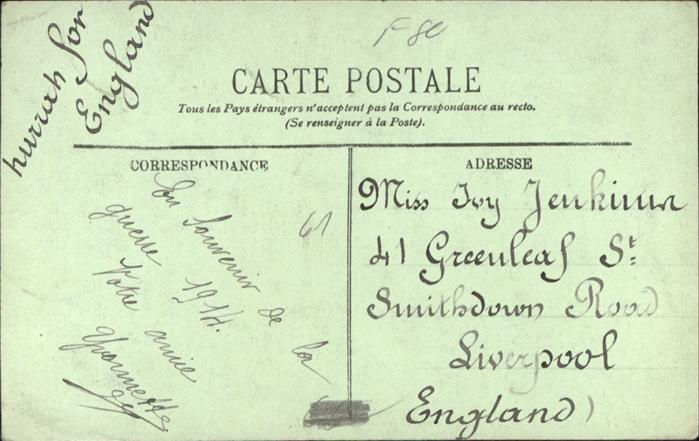 hurrah for
England
F 80
CARTE POSTALE
Tous les Pays étrangers n'acceptent pas la Correspondance au recto.
(Se renseigner à la Poste).
CORRESPONDANCE
En Souvenir de la
guerre 1914.
Votre amie
Yvonnette
61
ADRESSE
Miss Ivy Jenkinson
41 Greenleaf St
Smithdown Road
Liverpool
England